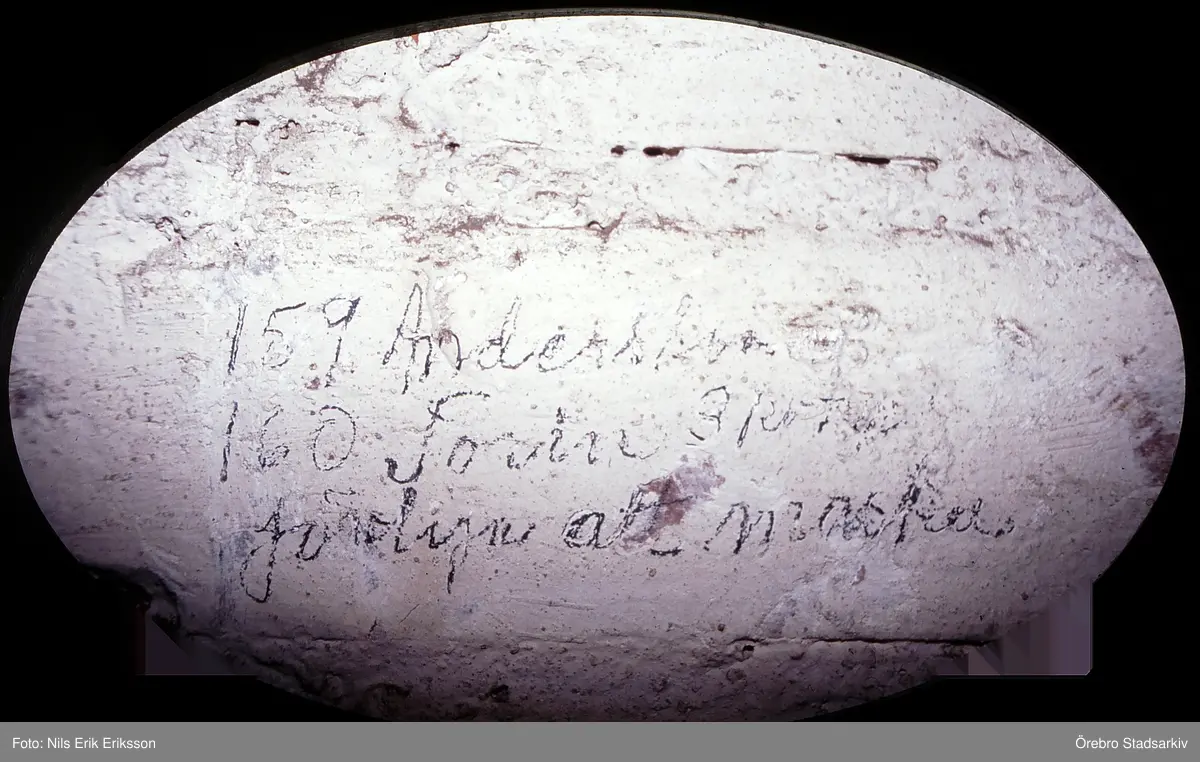 159 Andersson
160 Forin 3
förlign att maska
Foto: Nils Erik Eriksson
Örebro Stadsarkiv